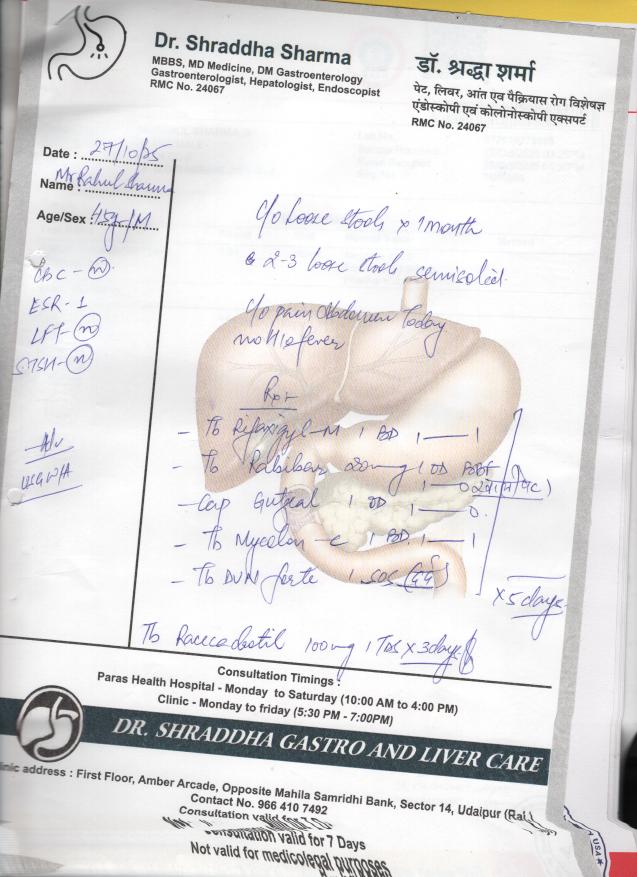 Dr. Shraddha Sharma
MBBS, MD Medicine, DM Gastroenterology
Gastroenterologist, Hepatologist, Endoscopist
RMC No. 24067
डॉ. श्रद्धा शर्मा
पेट, लिवर, आंत एव पैंक्रियास रोग विशेषज्ञ
एंडोस्कोपी एवं कोलोनोस्कोपी एक्सपर्ट
RMC No. 24067
Date : 27/10/25
Name : Mr Rahul Sharma
Age/Sex : 45y/M
c/o loose stools x 1 month
2-3 loose stools semisolid
c/o pain Abdomen Today
no H/o fever
CBC - (N)
ESR - 1
LFT - (N)
S.TSH - (N)
Adv
USG W/A
- Tb Rifaxigyl-M 1 BD 1——1
- Tb 20mg 1 OD BBF
1——0
- Cap Gutgal 1 OD 1——0.
- Tb Mycolon-c 1 BD 1——1
- Tb forte 1 SOS
x 5 days
Tb Racecadotil 100mg 1 TDS x 3days
Consultation Timings :
Paras Health Hospital - Monday to Saturday (10:00 AM to 4:00 PM)
Clinic - Monday to friday (5:30 PM - 7:00PM)
DR. SHRADDHA GASTRO AND LIVER CARE
linic address : First Floor, Amber Arcade, Opposite Mahila Samridhi Bank, Sector 14, Udaipur (Raj.)
Contact No. 966 410 7492
Consultation valid for 7
Consultation valid for 7 Days
Not valid for medicolegal purposes
USA